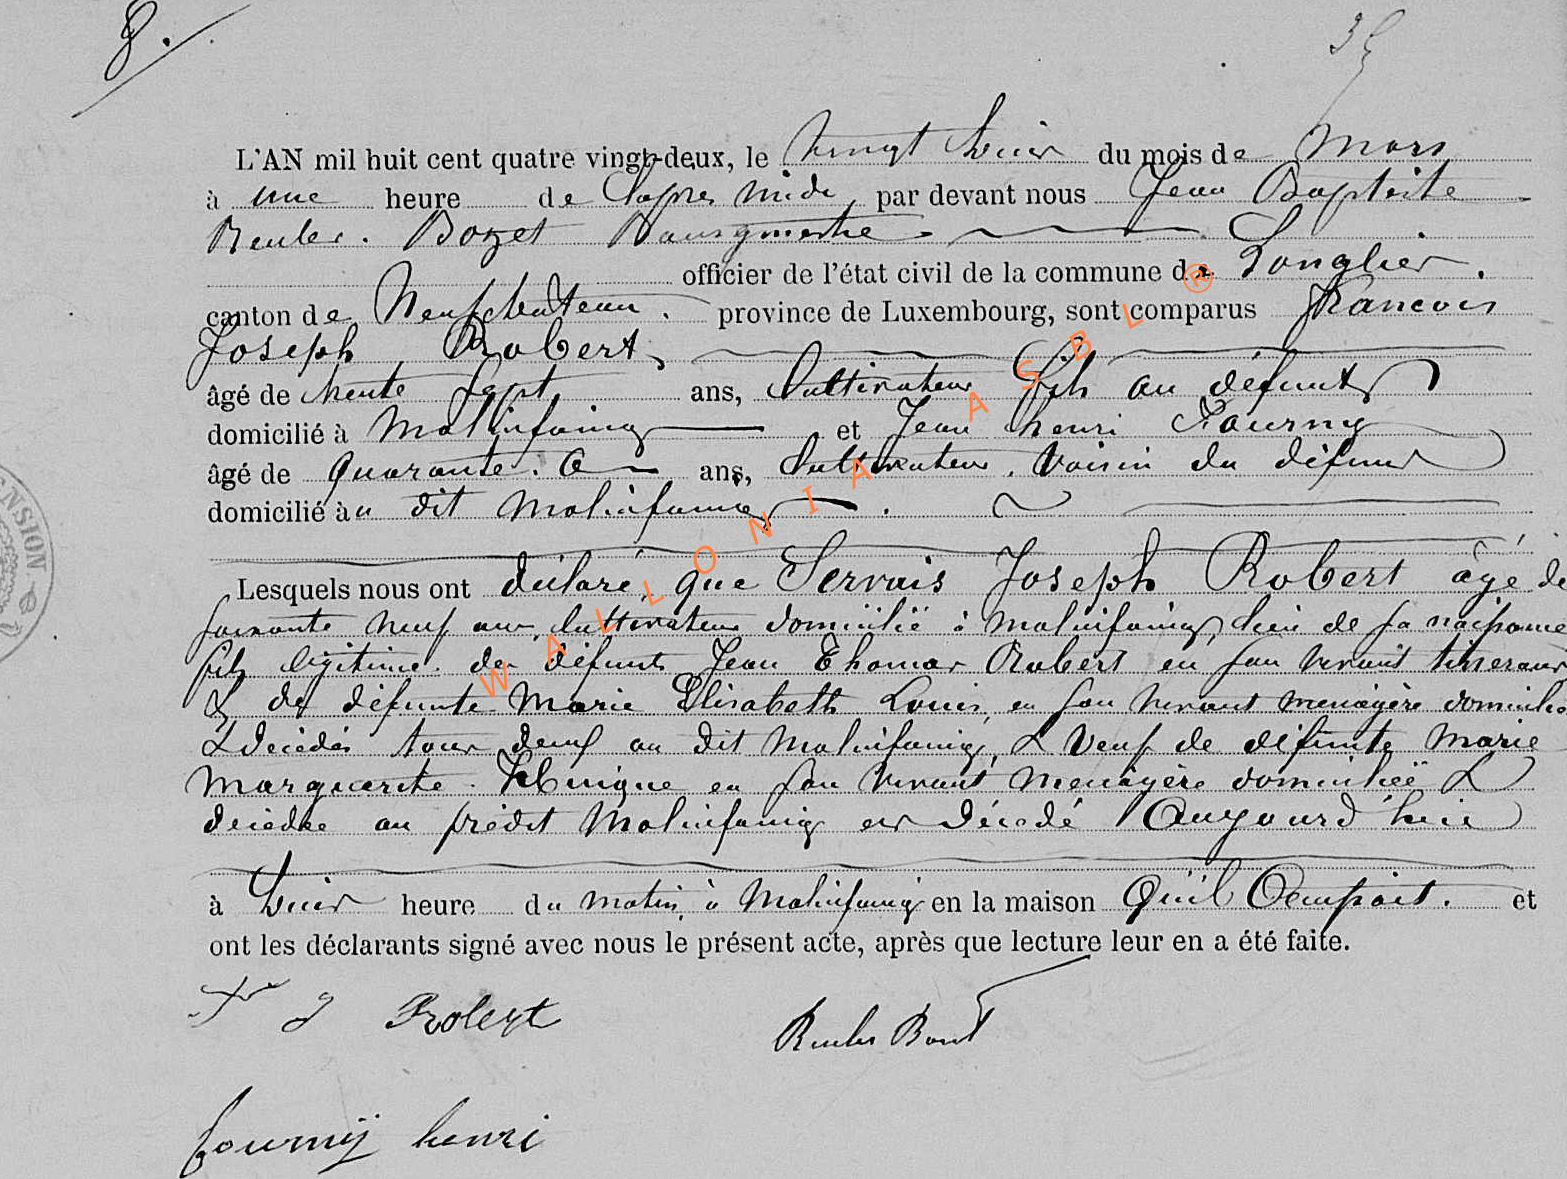 8.
35
L'AN mil huit cent quatre vingt-deux, le vingt huit du mois de Mars
à une heure de l'apres midi, par devant nous Jean Baptiste
Reuler. Bozet Bourgmestre
officier de l'état civil de la commune de Longlier.
canton de Neufchateau. province de Luxembourg, sont comparus francois
Joseph Robert,
âgé de trente sept ans, Cultivateur fils au défunt
domicilié à Molinfaing et Jean henri Fourny
âgé de quarante. ans, Cultivateur, voisin du défunt
domicilié au dit Molinfaing.
Lesquels nous ont déclaré, que Servais Joseph Robert âgé de
soixante neuf ans, Cultivateur domicilié à Molinfaing, lieu de sa naissance
fils légitime de défunts Jean Thomas Robert en son vivant
& de défunte Marie Elisabeth Louis, en son vivant menagère domiciliés
& décédés tous deux au dit Molinfaing, & veuf de défunte Marie
Marguerite en son vivant menagère domiciliée &
décédée au prédit Molinfaing est décédé Aujourd'hui
à huit heure du matin, à Molinfaing en la maison Qu'il Occupait. et
ont les déclarants signé avec nous le présent acte, après que lecture leur en a été faite.
J Robert
Reuler Bozet
fourny henri
WALLONIA ASBL ®
ENSION